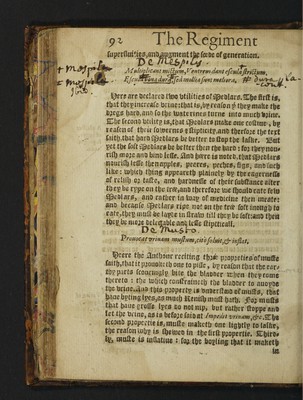 92 The Regiment
superfluities, and augment the seede of generation.
De Mespilis
Multiplicant mictum, ventrem dant escula strictum,
Escula dura sed mollia sunt meliora.
Here are declared two vtilities of Medlars. The first is,
that they increase vrine: that is, by reason they make the
dregs hard, and so the waterines turns into much vrine.
The second vtility is, that Medlars make one costiue, by
reason of their sowernes & stipticity, and therfore the text
saith, that hard Medlars be better to stop the laske. But
yet the soft Medlars be better then the hard: for they nou-
rish more and bind lesse. And here is noted, that Medlars
nourish lesse then apples, peeres, peches, figs, and such
like: which thing appeareth plainely by the egernesse
of relish or taste, and hardnesse of their substance after
they be ripe on the tree, and therfore we should eate few
Medlars, and rather in way of medicine then meate:
and because Medlars ripe not on the tree soft inough to
eate, they must be layde in straw till they be soft: and then
they be more delectable and lesse stipticall.
De Musto
Prouocat vrinam mustum, cito soluit, & inflat.
Heere the Authour reciting three properties of muste
saith, that it prouoketh one to pisse, by reason that the ear-
thy parts scouringly bite the bladder when they come
thereto: the which constraineth the bladder to auoyde
the vrine, and this property is vnderstand of mustes, that
haue byting lyes, as much Renish must hath. For musts
that haue grosse lyes do not nip, but rather stoppe and
let the vrine, as is before said at Impedit vrinam, &c. The
second propertie is, muste maketh one lightly to laske,
the reason why is shewed in the first propertie. Third-
ly, muste is inflatiue: for the boyling that it maketh
in,